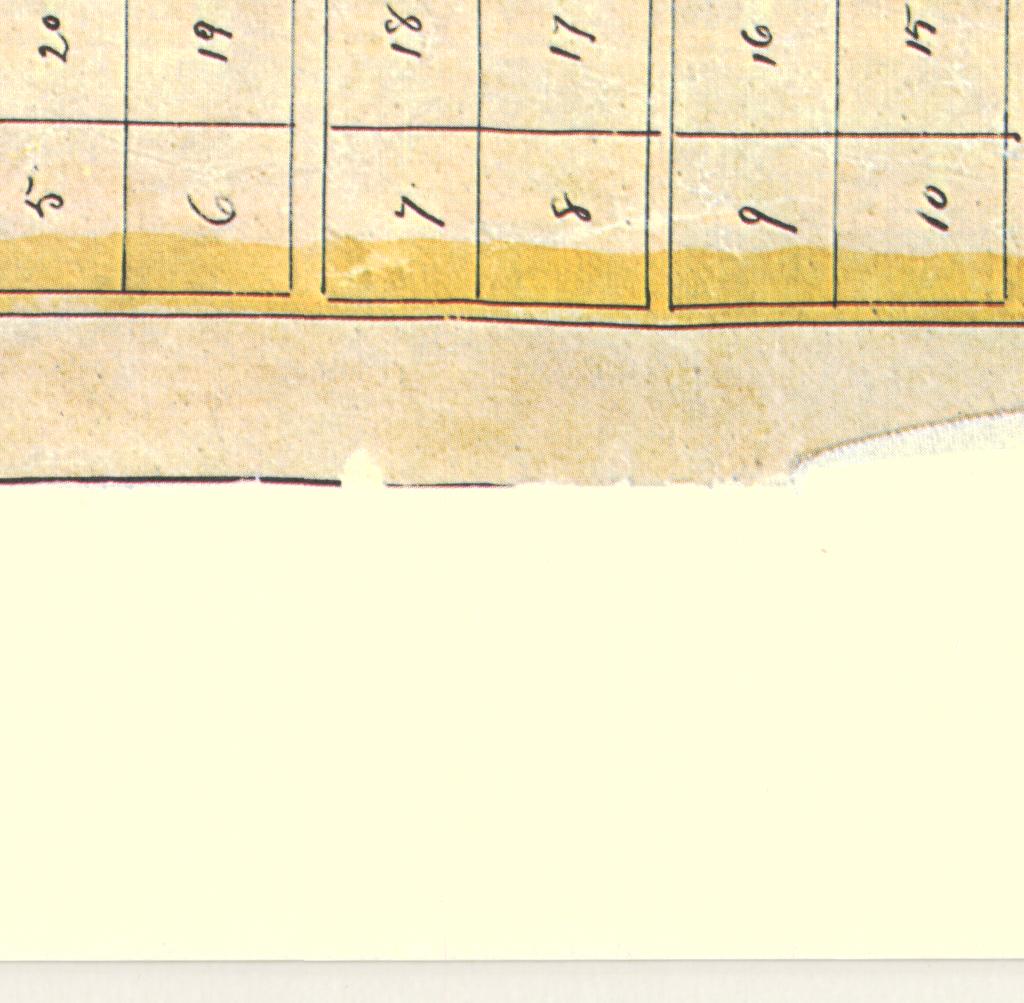 20 19 18 17 16 15
5 6 7 8 9 10